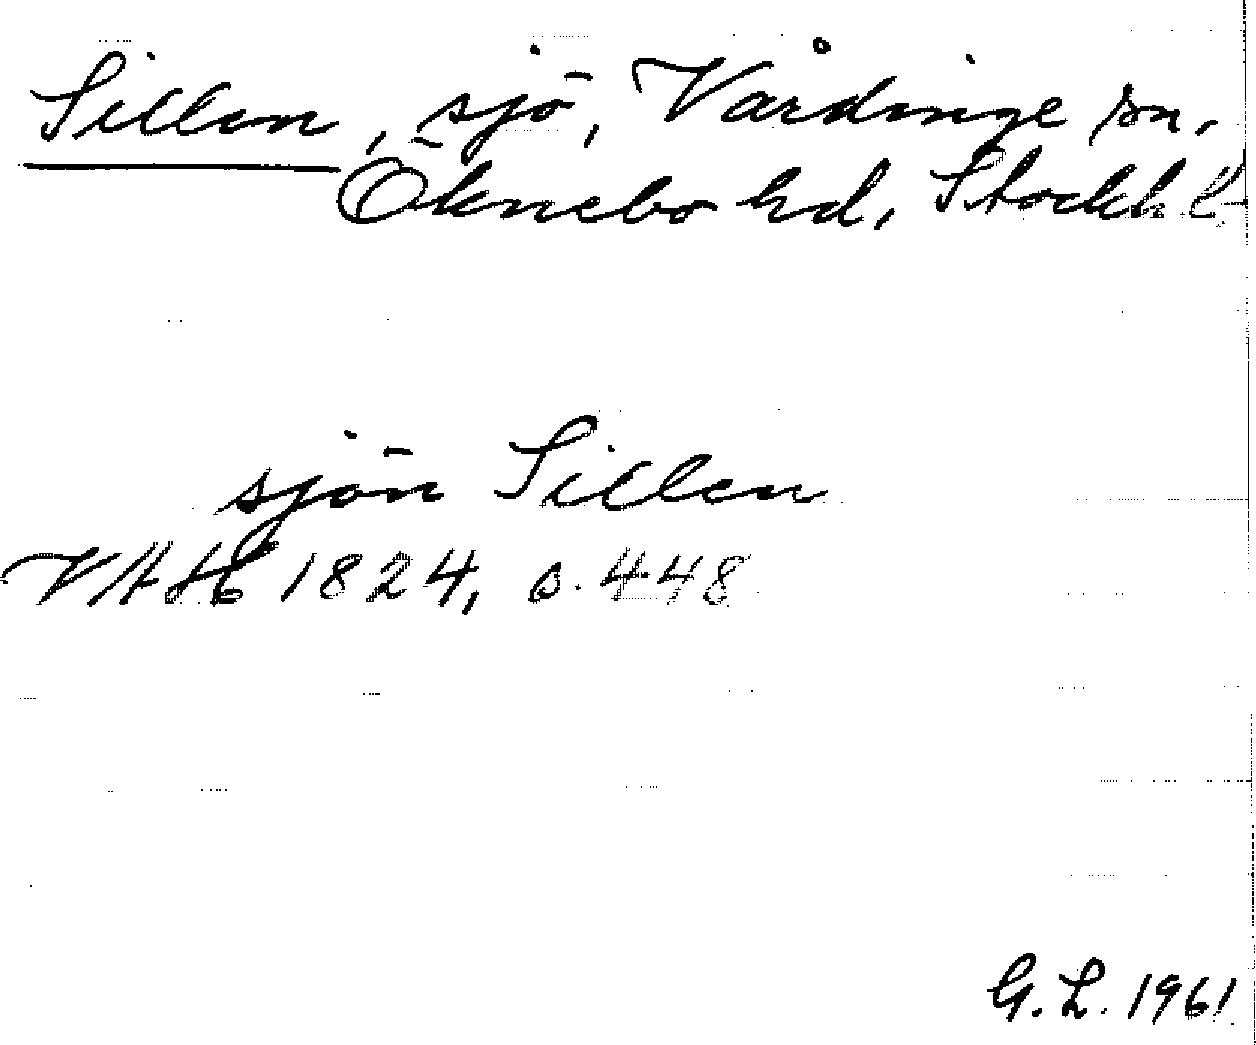 Sillen, sjö, Vårdinge sn,
Öknebo hd, Stockh. l.
sjön Sillen
VAH 1824, s. 448
G. L. 1961